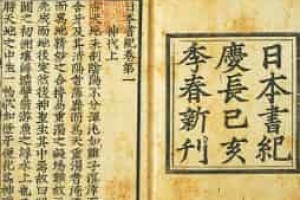 日本書紀
慶長己亥
季春新刊
日本書紀卷第一
神代上
古天地未剖陰陽不分渾沌如雞子溟涬
而含牙及其清陽者薄靡而爲天重濁者
而爲地精妙之合摶易重濁之凝竭難
先成而地後定然後神聖生其中焉故曰
闢之初洲壤浮漂譬猶游魚之浮水上也
時天地之中生一物狀如葦牙便化爲神